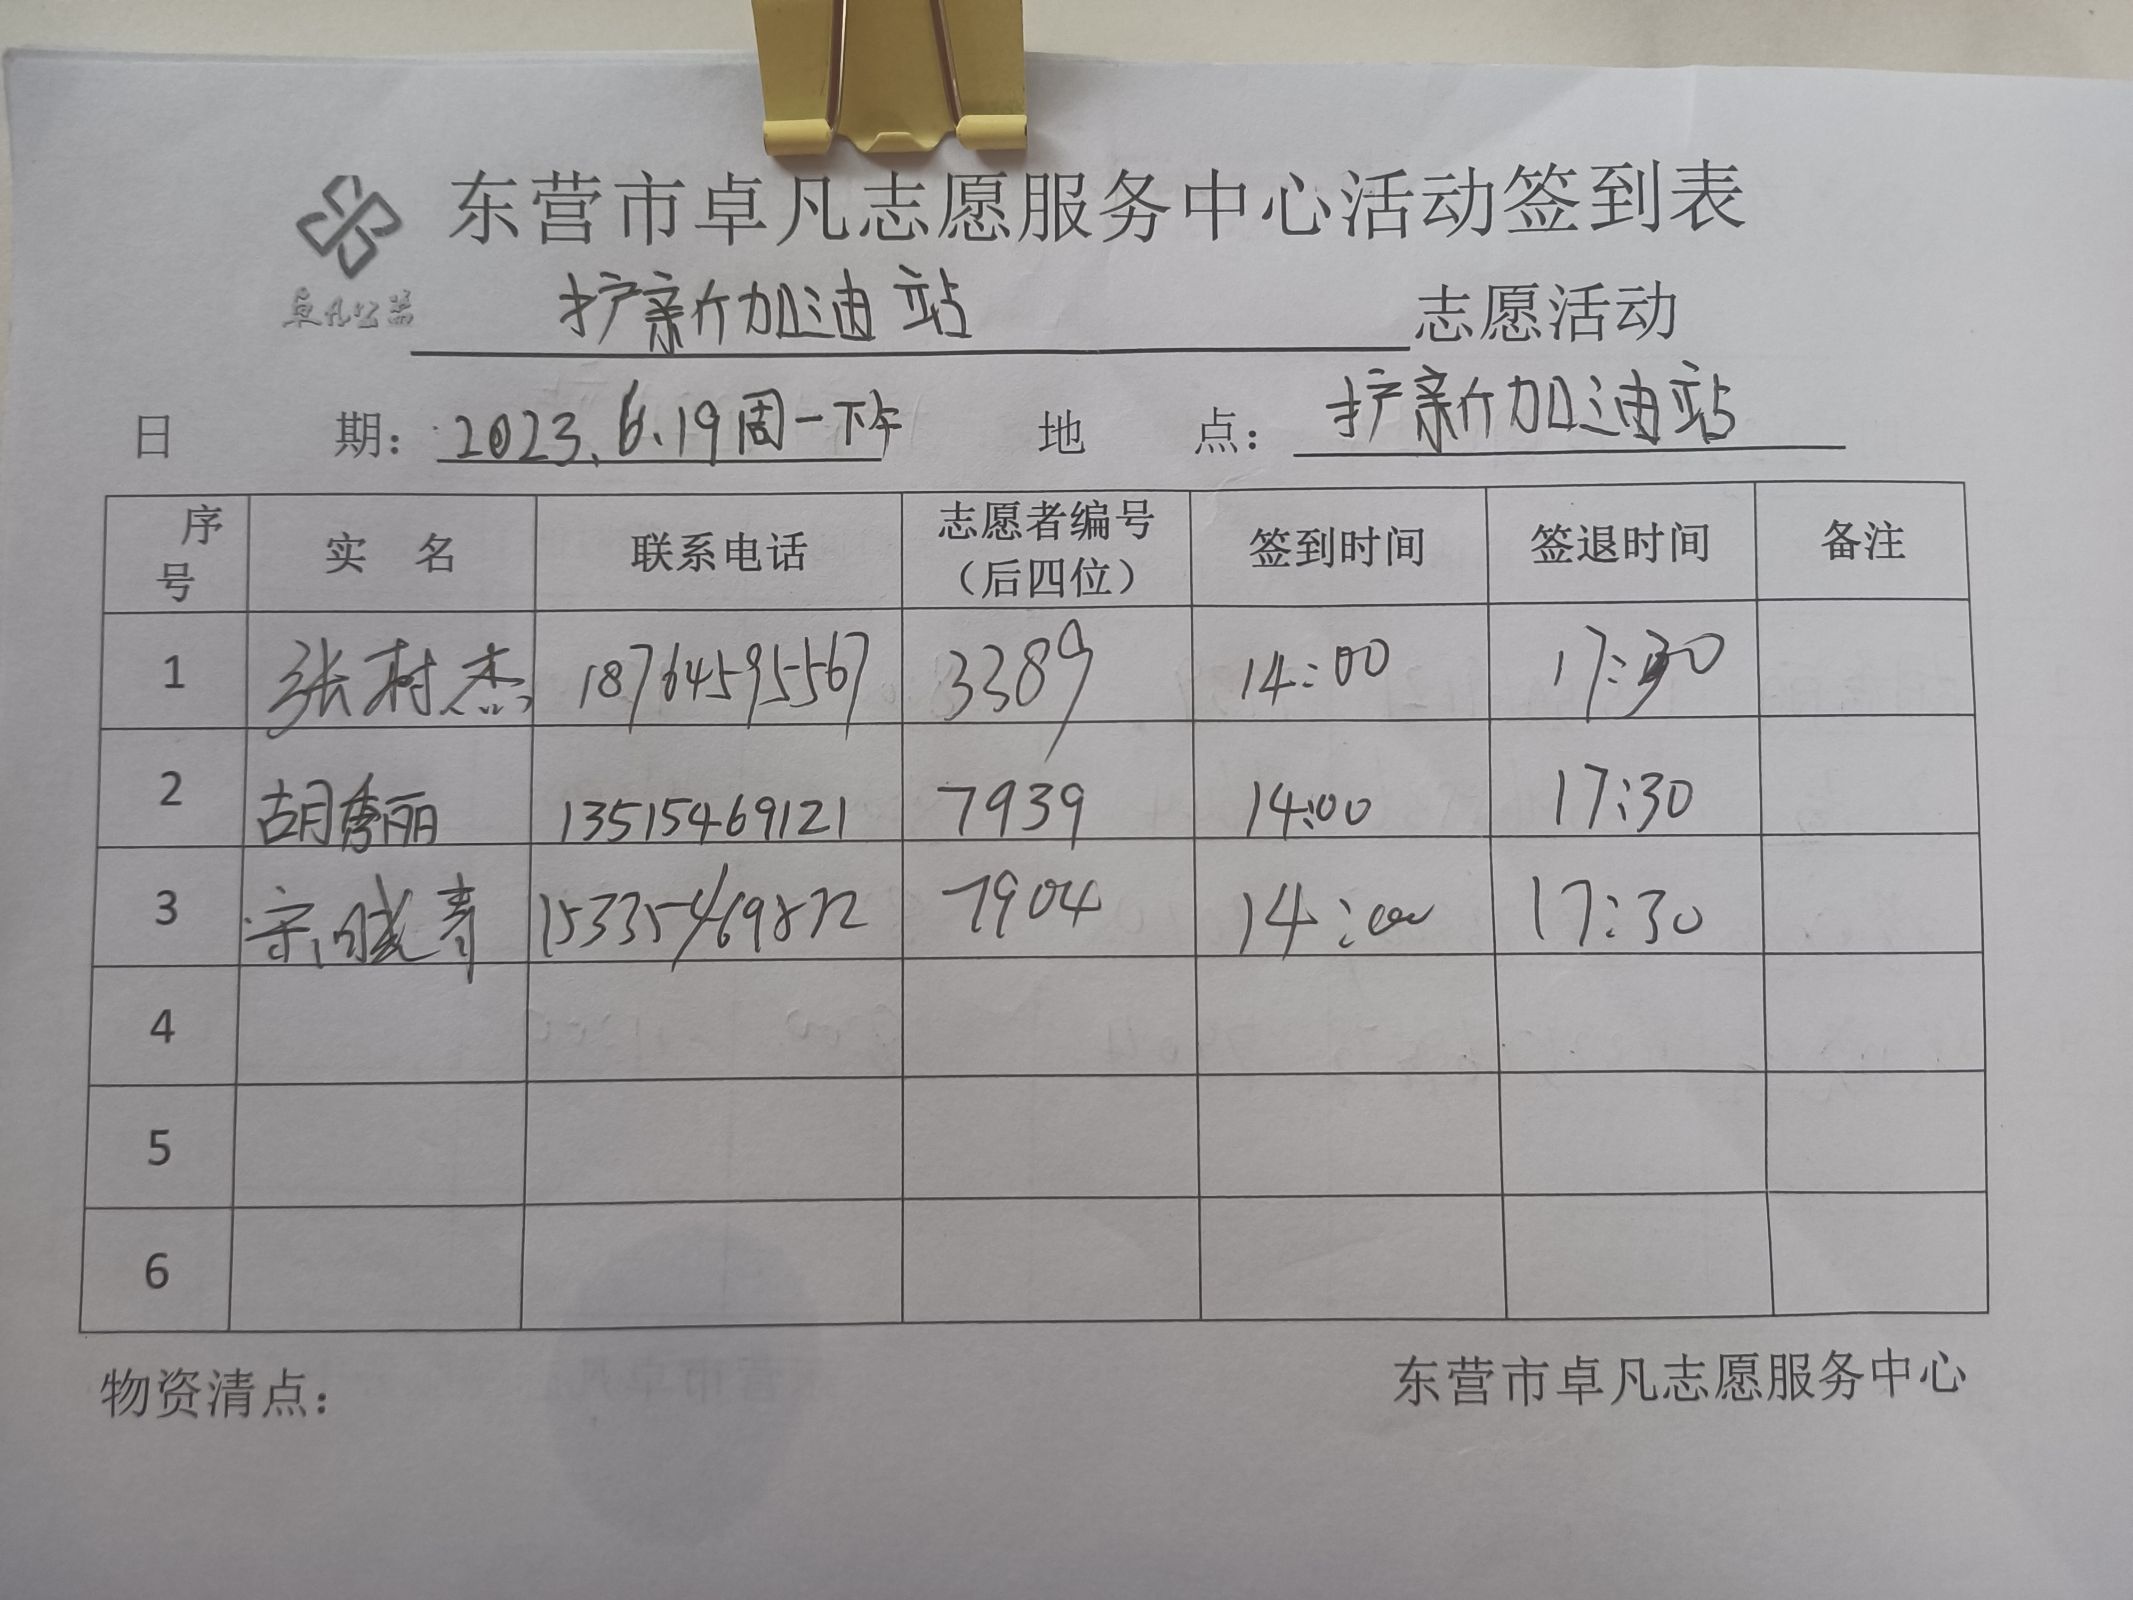 东营市卓凡志愿服务中心活动签到表
卓凡公益
护新加油站 志愿活动
日 期: 2023.6.19周一下午 地 点: 护新加油站
序号 实 名 联系电话 志愿者编号(后四位) 签到时间 签退时间 备注
1 张树杰 18764595567 3389 14:00 17:30
2 胡秀丽 13515469121 7939 14:00 17:30
3 宋晓青 15335469872 7904 14:00 17:30
4
5
6
物资清点: 东营市卓凡志愿服务中心